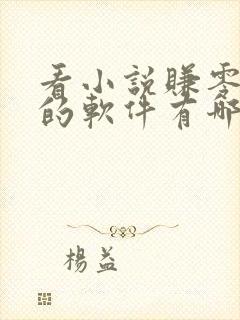 看小說賺零
的軟件有哪
楊益